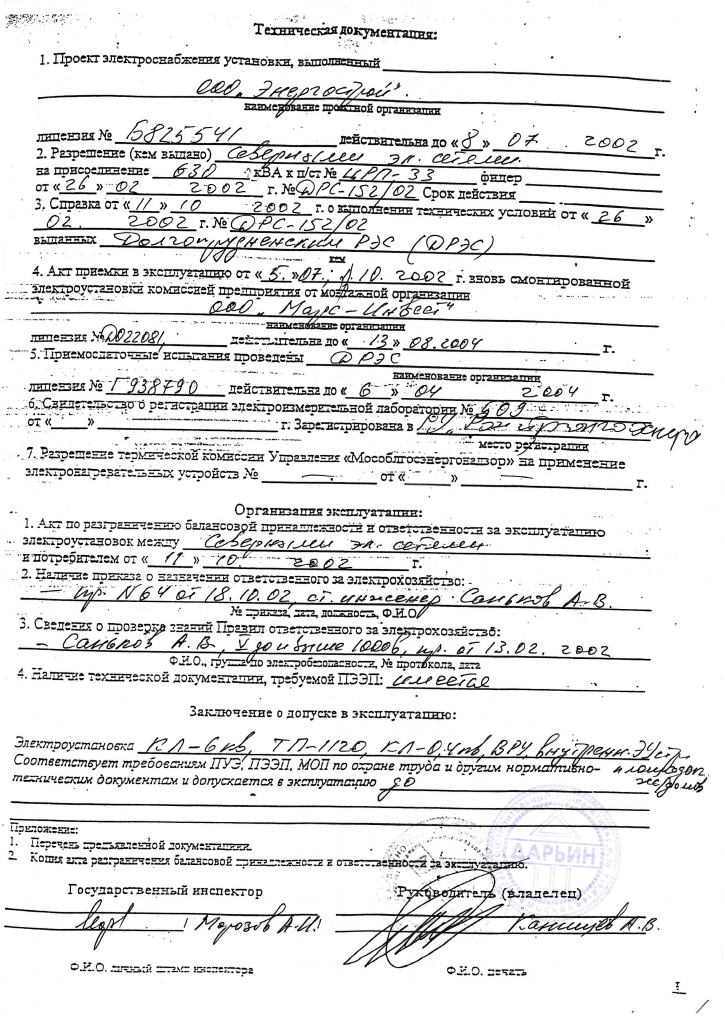 Техническая документация:
1. Проект электроснабжения установки, выполненный
ООО „Энергострой".
наименование проектной организации
лицензия № Б825541 действительна до « 8 » 07 2002 г.
2. Разрешение (кем выдано) Северными эл. сетями
на присоединение 630 кВА к п/ст № ЦРП-33 фидер
от « 26 » 02 2002 г. № ДРС-152/02 Срок действия
3. Справка от « 11 » 10 2002 г. о выполнении технических условий от « 26 »
02. 2002 г. № ДРС-152/02
выданных Долгопрудненским РЭС (ДРЭС)
кем
4. Акт приемки в эксплуатацию от « 5. » 07; 10. 2002 г. вновь смонтированной
электроустановки комиссией предприятия от монтажной организации
ООО „Марс-Инвест"
наименование организации
лицензия № Д022081, действительна до « 13 » 08.2004 г.
5. Приемосдаточные испытания проведены ДРЭС
наименование организации
лицензия № Г938790 действительна до « 6 » 04 2004 г.
6. Свидетельство о регистрации электроизмерительной лаборатории № 909
от « » г. Зарегистрирована в
место регистрации
7. Разрешение термической комиссии Управления «Мособлгосэнергонадзор» на применение
электронагревательных устройств № — от « » — г.
Организация эксплуатации:
1. Акт по разграничению балансовой принадлежности и ответственности за эксплуатацию
электроустановок между Северными эл. сетями
и потребителем от « 11 » 10. 2002 г.
2. Наличие приказа о назначении ответственного за электрохозяйство:
— пр. N64 от 18.10.02, ст. инженер Саньков А.В.
№ приказа, дата, должность, Ф.И.О.
3. Сведения о проверке знаний Правил ответственного за электрохозяйство:
— Саньков А.В., V до и выше 1000в, пр. от 13.02. 2002
Ф.И.О., группа по электробезопасности, № протокола, дата
4. Наличие технической документации, требуемой ПЭЭП: имеется
Заключение о допуске в эксплуатацию:
Электроустановка КЛ-6кв, ТП-1120, КЛ-0,4кв, ВРУ, внутренн. ЭУ
Соответствует требованиям ПУЭ, ПЭЭП, МОП по охране труда и другим нормативно-
техническим документам и допускается в эксплуатацию до
Приложение:
1. Перечень предъявленной документации.
2. Копия акта разграничения балансовой принадлежности и ответственности за эксплуатацию.
ДАРЬИН
Государственный инспектор Руководитель (владелец)
Морозов А.И. Канищев А.В.
Ф.И.О. личный штамп инспектора Ф.И.О. печать